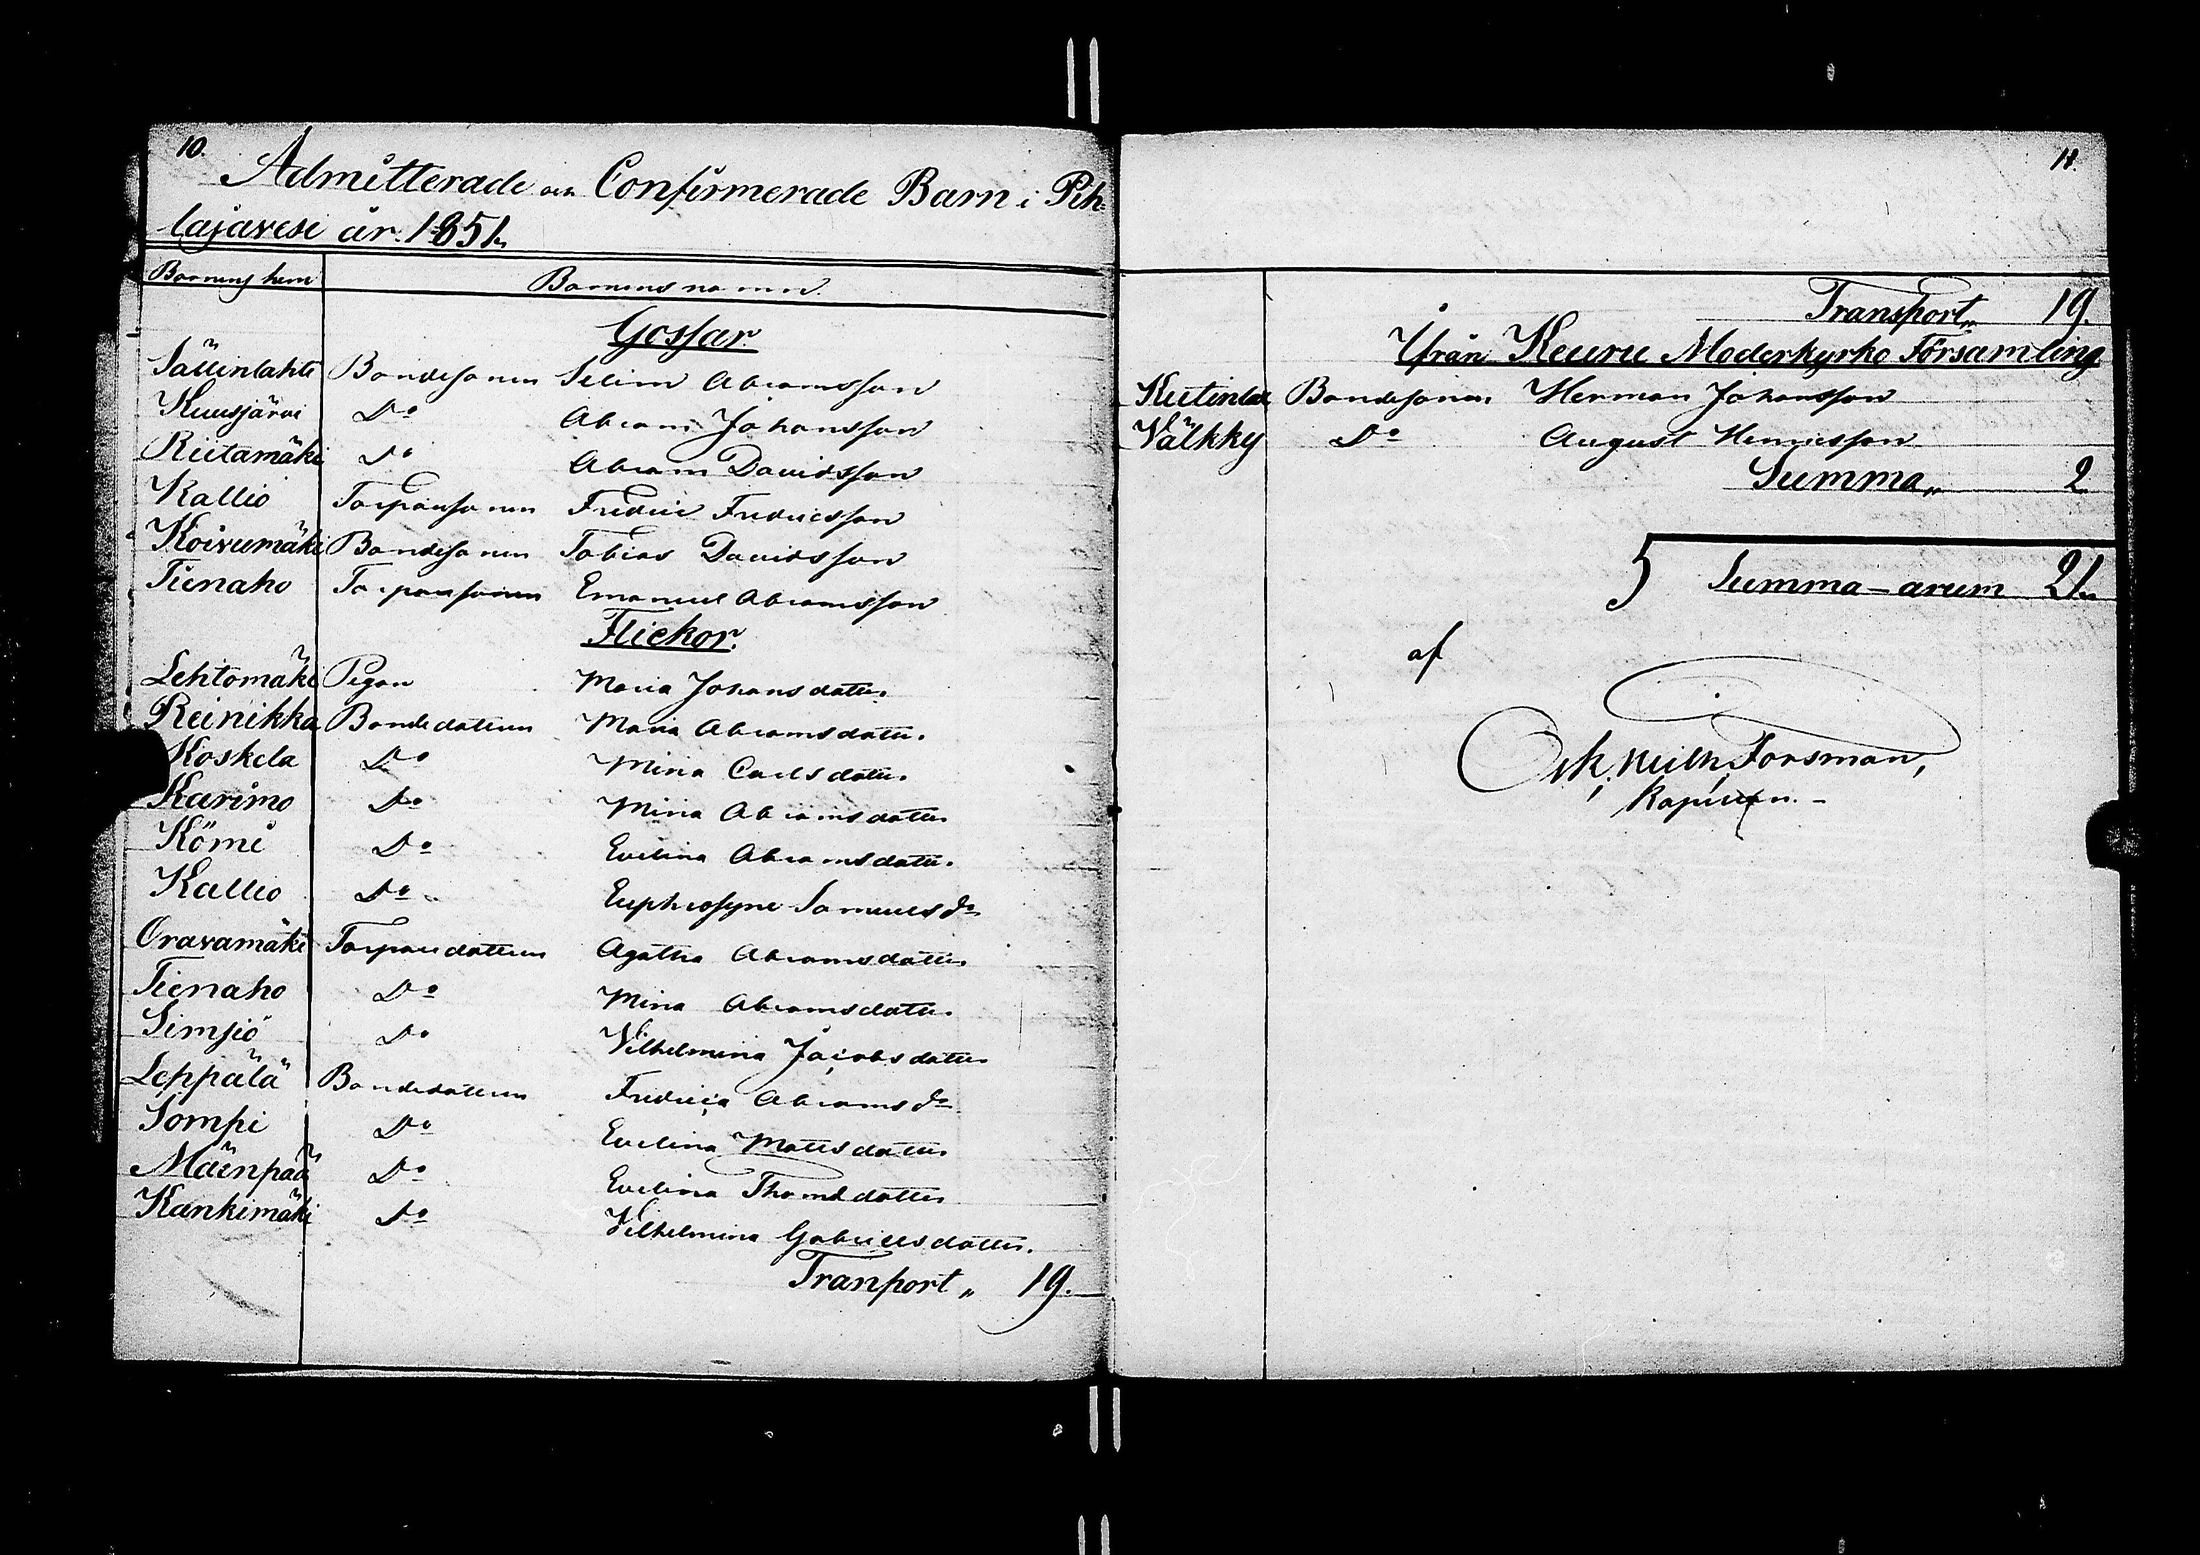 10.
Admitterade och Confirmerade Barn i Pih-
lajavesi år 1851.
Barnens hem Barnens namn.
Gossar.
Bondesonen Selim Abramsson
Kuusjärvi Do Abram Johansson
Riitamäki Do Abram Davidsson
Kallio Torparesonen Fredric Fredricsson
Koivumäki Bondesonen Tobias Davidsson
Tienaho Torparesonen Emanuel Abramsson
Flickor.
Lehtomäki Pigan Maria Johansdotter.
Reinikka Bondedottern Maria Abramsdotter.
Koskela Do Mina Carlsdotter.
Karimo Do Mina Abramsdotter
Kömi Do Evelina Abramsdotter.
Kallio Do Euphrosyne Samuelsdr
Oravamäki Torparedottern Agatha Abramsdotter
Tienaho Do Mina Abramsdotter.
Simsiö Do Vilhelmina Jacobsdotter
Leppälä Bondedottern Fredrica Abramsdr
Sompi Do Evelina Mattsdotter
Mäenpää Do Evelina Thomasdotter
Kankimäki Do Vilhelmina Gabrielsdotter.
Tranport „ 19.
11.
Transport „ 19.
Ifrån Keuru Moderkyrko Församling
Bondesonen Herman Johansson
Välkky Do August Henricsson
Summa „ 2
Summa-arum 21.
af
Forsman,
Kapellan.-